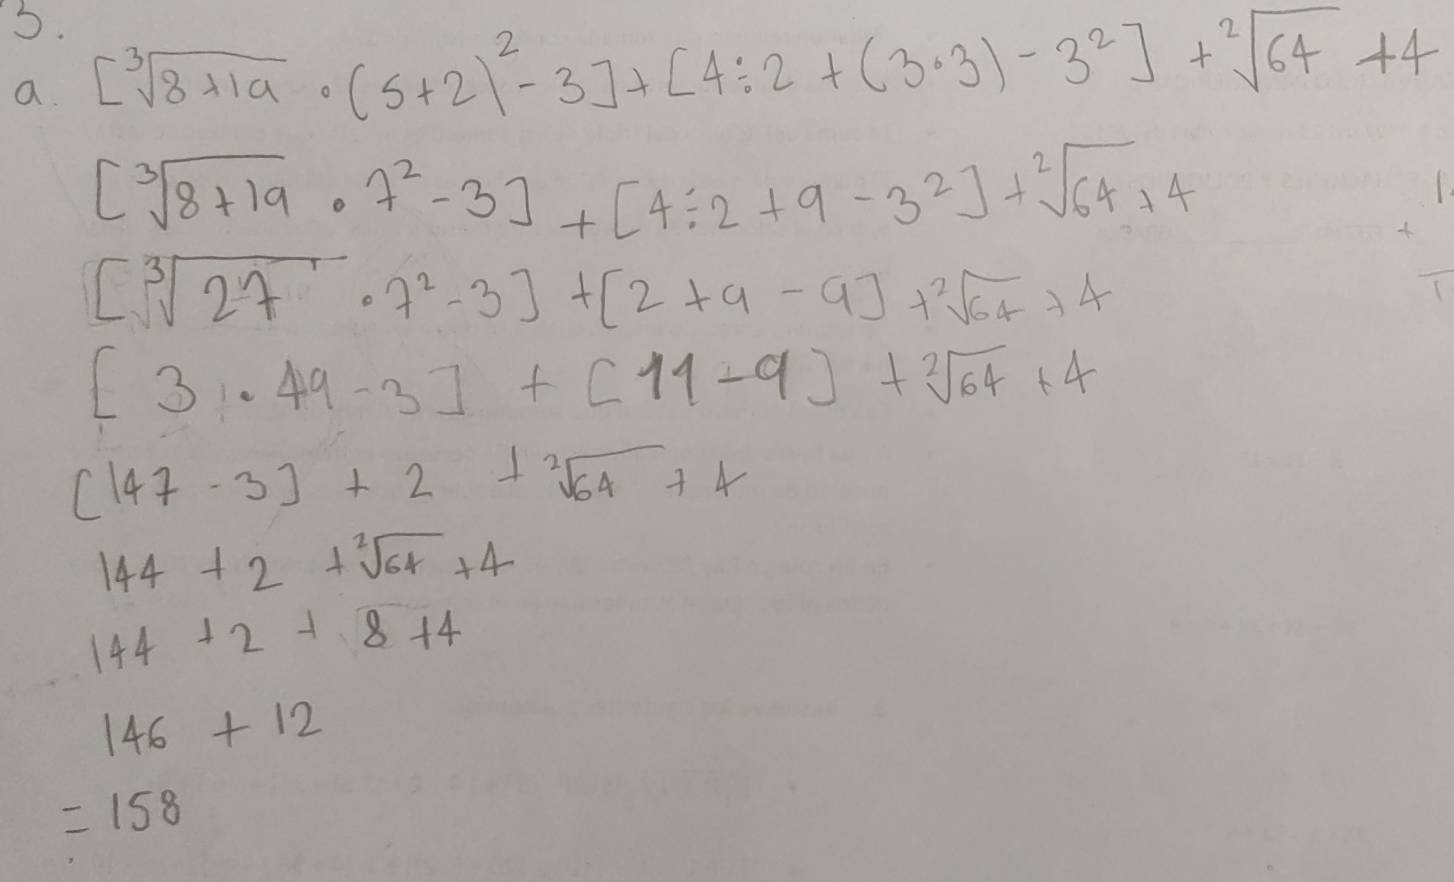 3.
a. [∛8+19 • (5+2)² - 3] + [4÷2 + (3•3) - 3²] + ²√64 + 4
[∛8+19 • 7² - 3] + [4÷2 + 9 - 3²] + ²√64 + 4
[∛27 • 7² - 3] + [2 + 9 - 9] + ²√64 + 4
[3 • 49 - 3] + [11 - 9] + ²√64 + 4
[147 - 3] + 2 + ²√64 + 4
144 + 2 + ²√64 + 4
144 + 2 + 8 + 4
146 + 12
= 158